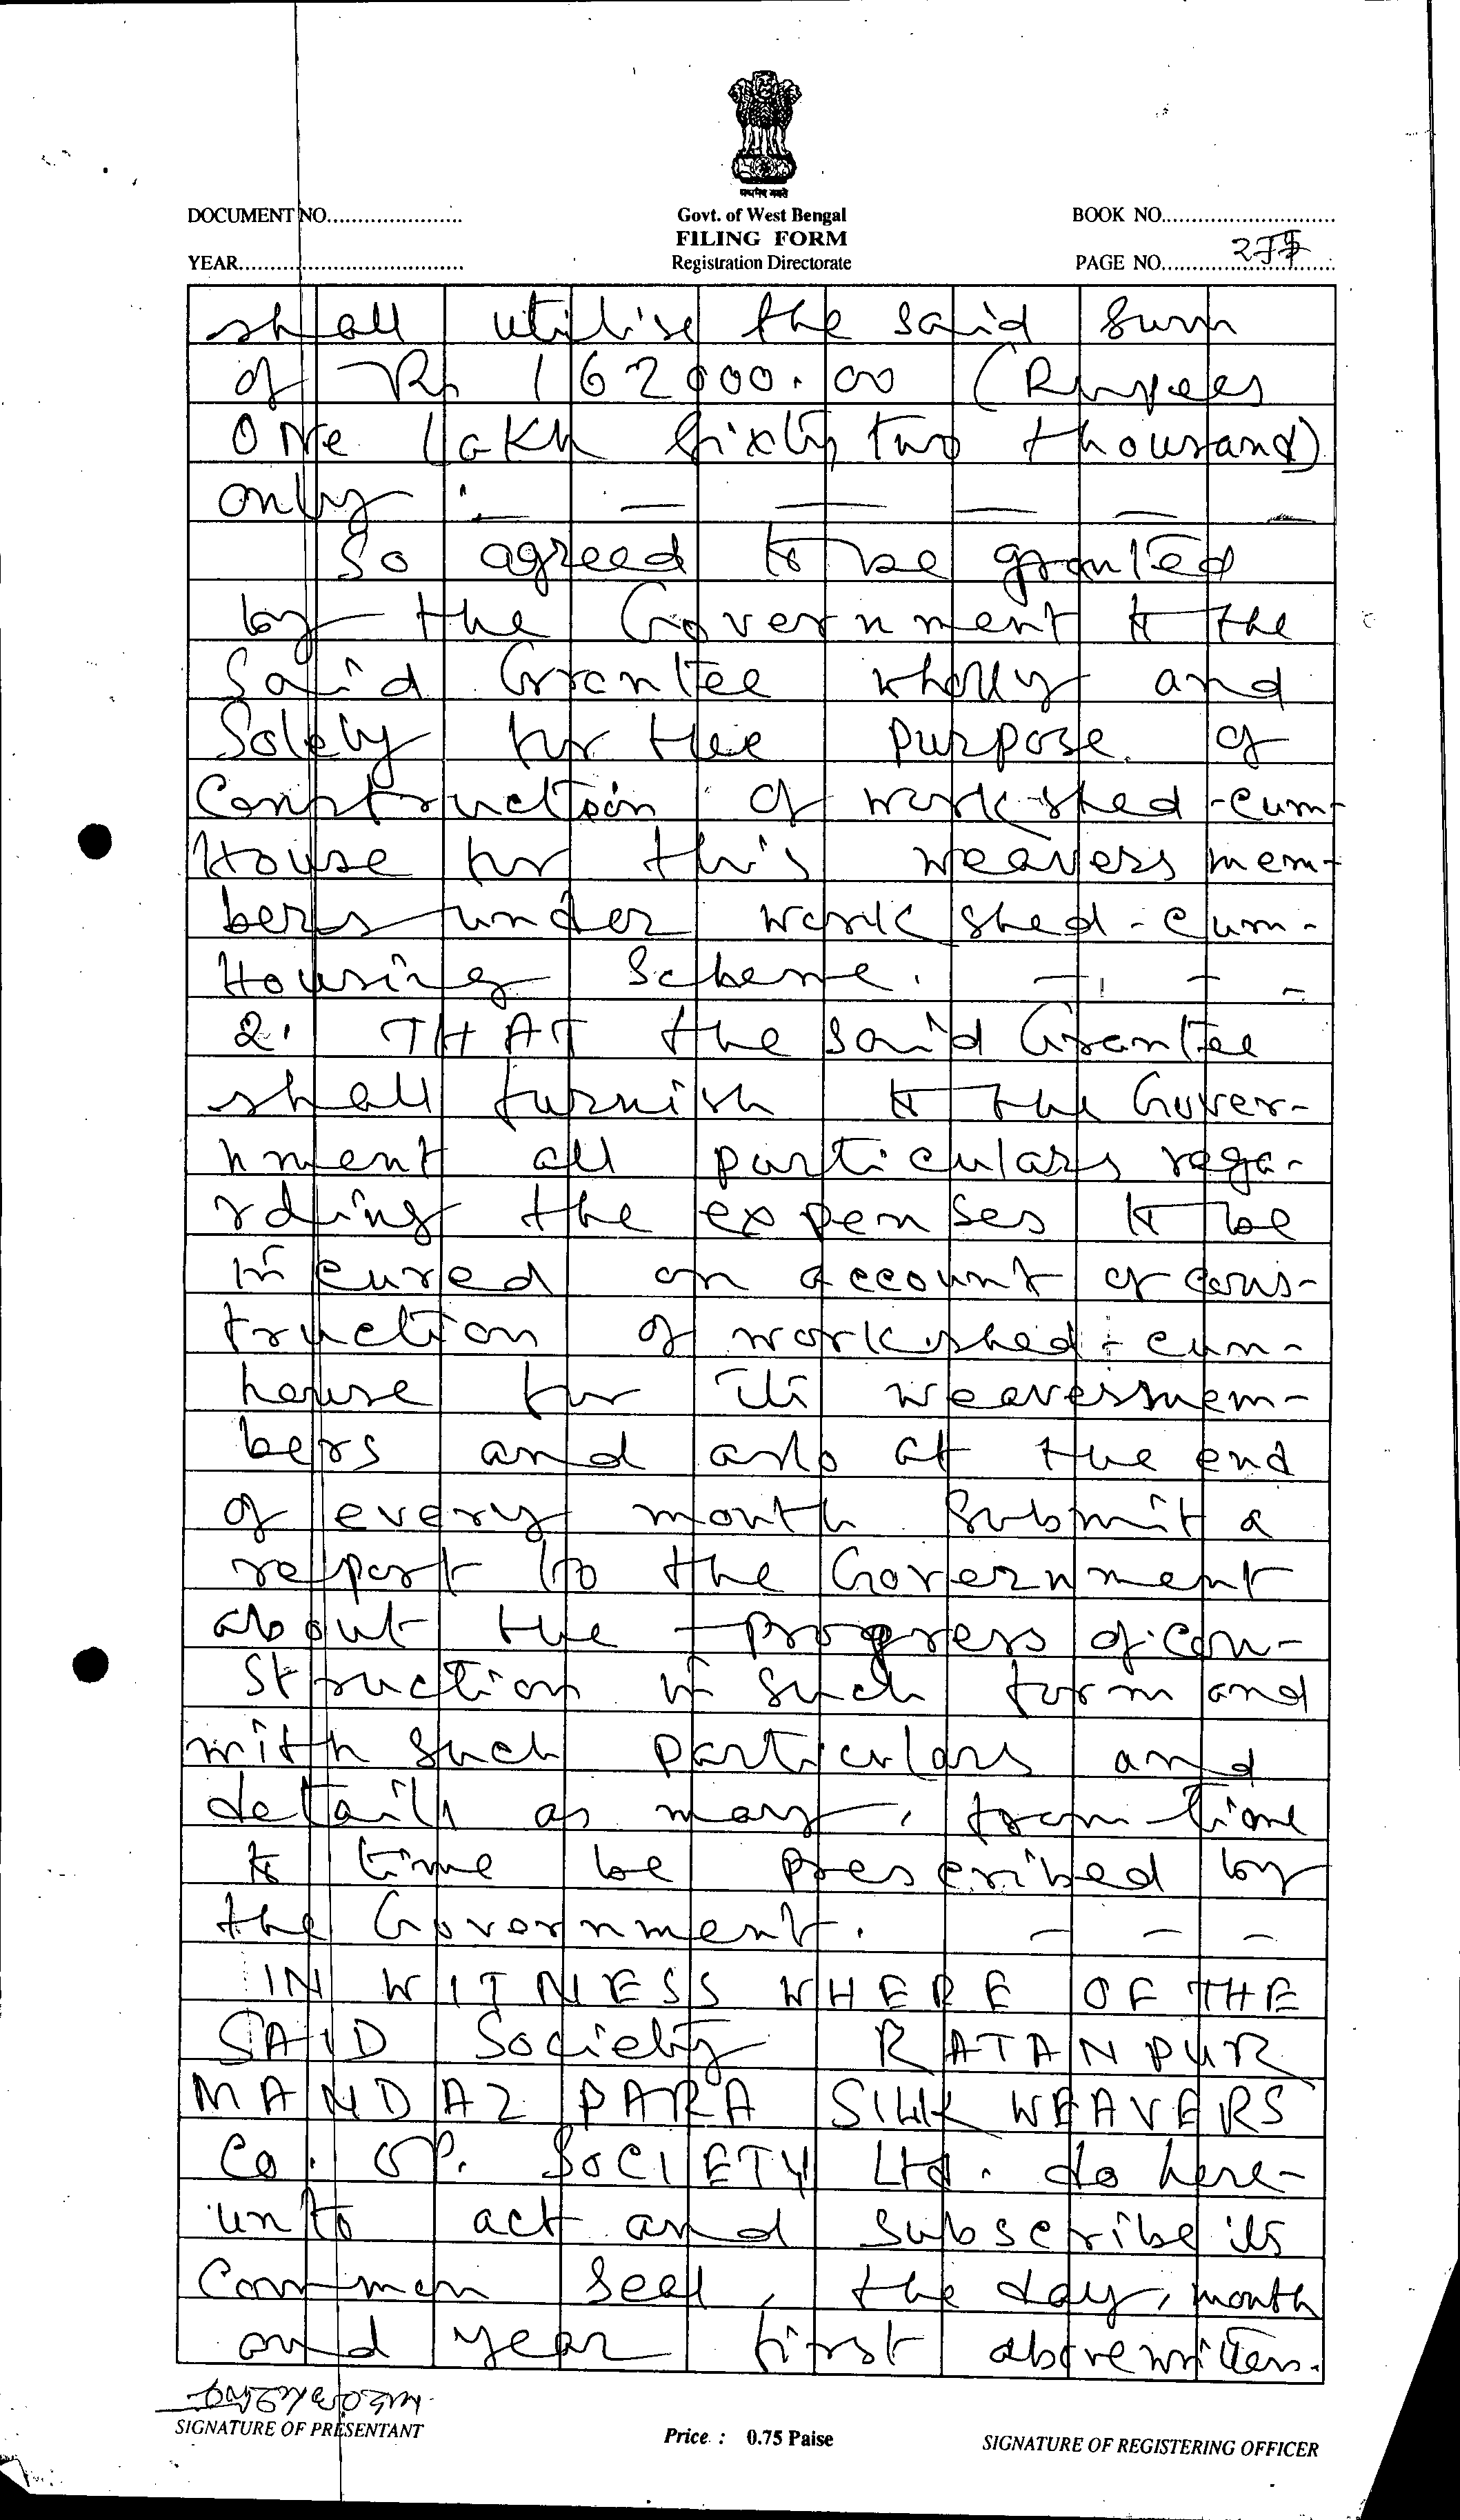 सत्यमेव जयते
DOCUMENT NO......................
Govt. of West Bengal
BOOK NO............................
FILING FORM
YEAR....................................
Registration Directorate
PAGE NO............................
shall utilise the said sum
of Rs 162000.00 (Rupees
ONe lakh Sixty two thousand)
only :— — — — — —
So agreed to be granted
by the Government to the
Said Grantee wholly and
Solely for the purpose of
Construction of work-shed-cum-
House for this weavers mem-
bers under work shed-cum-
Housing Scheme. — — —
2. THAT the said Grantee
shall furnish to the Gover-
nment all particulars rega-
rding the expenses to be
incured on account of cons-
truction of work shed-cum-
house for its weavers mem-
bers and also at the end
of every month submit a
report to the Government
about the progress of con-
struction in such form and
with such particulars and
details as may, from time
to time be prescribed by
the Government. — — —
IN WITNESS WHERE OF THE
SAID Society RATANPUR
MANDAL PARA SILK WEAVERS
Co. OP. SOCIETY Ltd. do here-
unto act and subscribe its
Common Seal, the day, month
and year first above written.
SIGNATURE OF PRESENTANT
Price : 0.75 Paise
SIGNATURE OF REGISTERING OFFICER